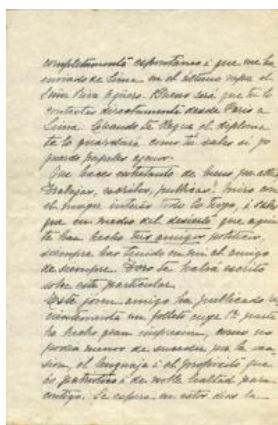 completamente espontanea i que me ha
enviado de Lima en el último vapor el
Señor Riva Agüero. Bueno será que tu le
contestes directamente desde Paris a
Lima. Cuando te llegue el diploma
te lo guardaré como tu sabes si yo
guardo papeles ajenos.
Que haces entretanto de bueno por allí?
Trabajas, escribes, publicas? miro con
el mayor interés todo lo tuyo, i sabes
que en medio del desierto que aquí
te han hecho tus amigos políticos,
siempre has tenido en mi el amigo
de siempre. Doro te habrá escrito
sobre este particular.
Este jóven amigo ha publicado re
cientemente un folleto cuya 1ª parte
ha hecho gran impresion, como no
podia menos de suceder por la
el lenguaje i el propósito que
es patriótico i de noble lealtad para
contigo. Se espera en estos dias la